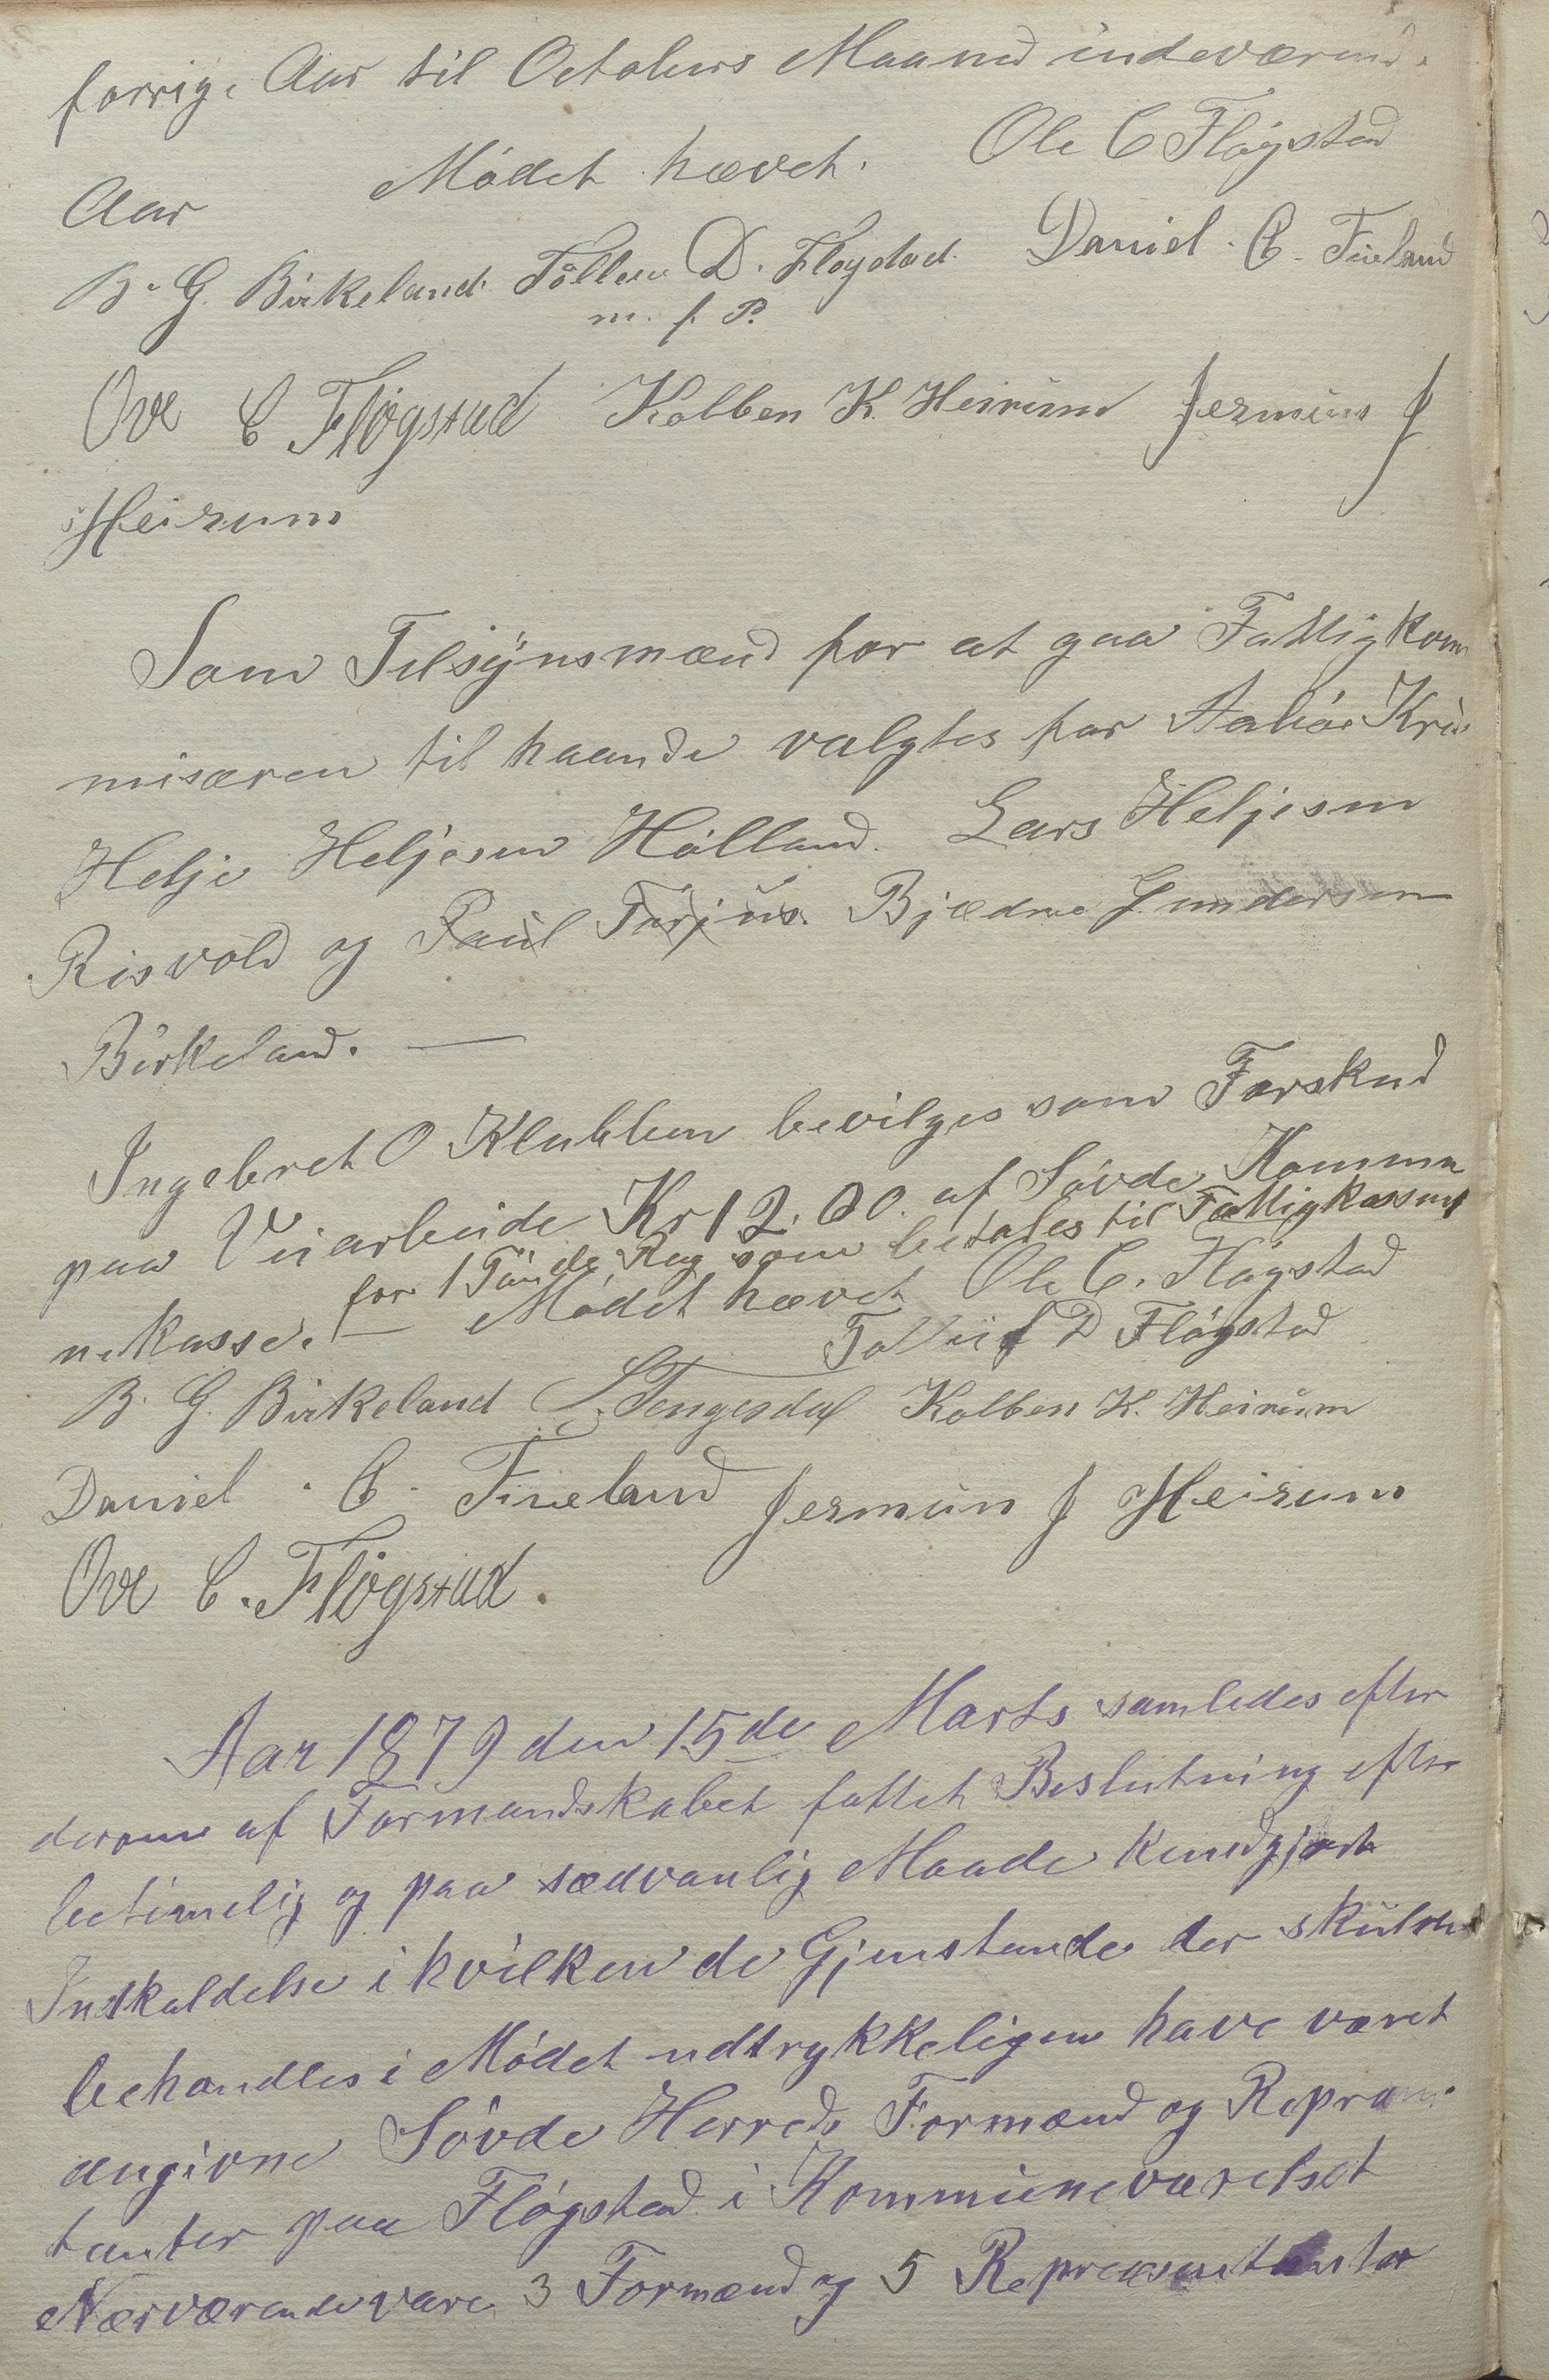 forrige Aar til Octobers Maaned indeværend.
Aar Mödet hævet. Ole C Flögstad
B. G. Birkeland. Tollen D. Flogstad. Daniel. C. Fineland
m. f. P.
Ove C Flögstad Kolben K. Heirum Jermun J
Heirum
Som Tilsynsmænd for at gaa Fattigkom
misæren til haande valgtes for Aaböe Kre
Helje Heljesen Hölland. Lars Heljesen
Risvold og Paul Torjus. Bjædne Gundersen
Birkeland. —
Ingebret O Klubben bevilges som Forskud
paa Veiarbeide Kr 12.00. af Sövde Kommu
for 1 Tönde Rug som betales til Fattigkassen
nekasse. — Mödet hævet Ole C. Flögstad
Tolleif D Flögstad
B. G. Birkeland L. Tengesdal Kolben K. Heirum
Daniel. C. Fineland Jermun J Heirum
Ove C. Flögstad.
Aar 1879 den 15de Marts samledes efter
derom af Formandskabet fattet Beslutning efter
betimelig og paa sædvanlig Maade kundgjort
Indkaldelse i hvilken de Gjenstande der skulde
behandles i Mödet udtrykkeligen have været
angivne Sövde Herreds Formænd og Repræsen
tanter paa Flögstad i Kommuneværelset
Nærværende vare 3 Formænd og 5 Repræsentanter